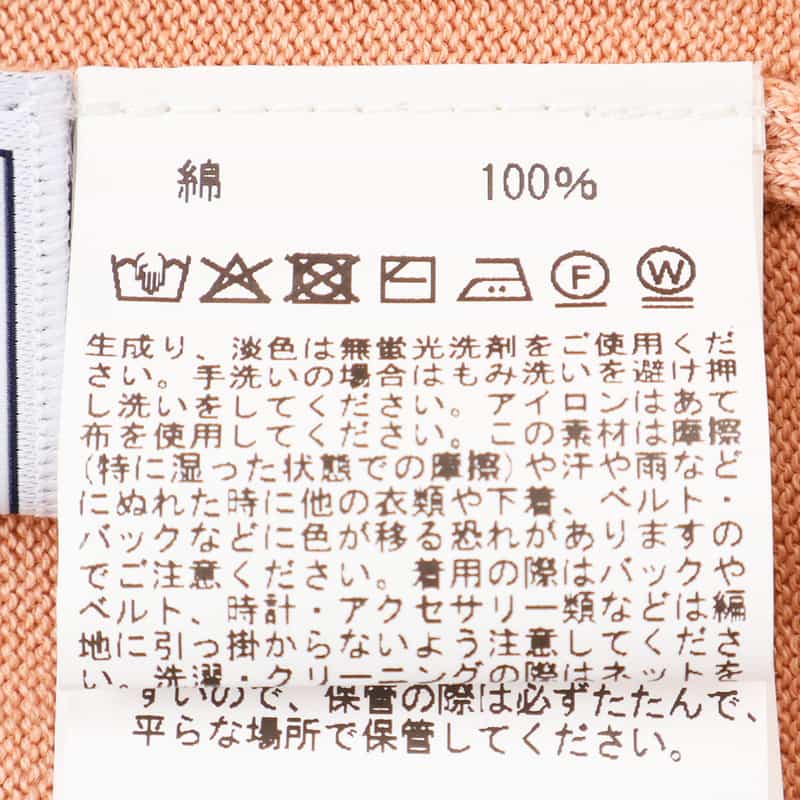 綿 100%
F W
生成り、淡色は無蛍光洗剤をご使用くだ
さい。手洗いの場合はもみ洗いを避け押
し洗いをしてください。アイロンはあて
布を使用してください。この素材は摩擦
(特に湿った状態での摩擦)や汗や雨など
にぬれた時に他の衣類や下着、ベルト・
バックなどに色が移る恐れがありますの
でご注意ください。着用の際はバックや
ベルト、時計・アクセサリー類などは編
地に引っ掛からないよう注意してくださ
い。洗濯・クリーニングの際はネットを
すいので、保管の際は必ずたたんで、
平らな場所で保管してください。